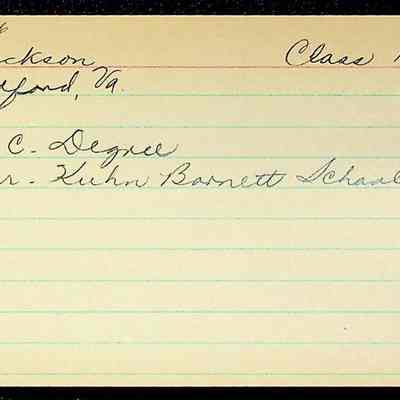 ckson Class
ford, Va.
C. Degree
r. Kuhn Barnett School